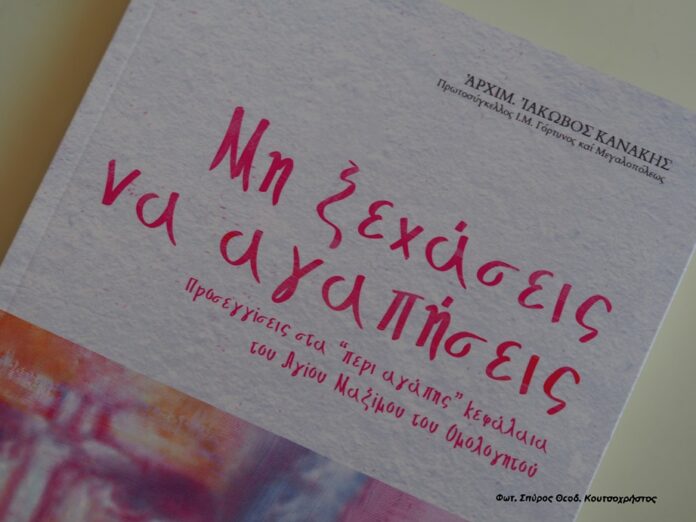 ἈΡΧΙΜ. ἸΑΚΩΒΟΣ ΚΑΝΑΚΗΣ
Πρωτοσύγκελλος Ι.Μ. Γόρτυνος καί Μεγαλοπόλεως
Μη ξεχάσεις
να αγαπήσεις
Προσεγγίσεις στα "περι αγάπης" κεφάλαια
του Αγίου Μαξίμου του Ομολογητού
Φωτ. Σπύρος Θεοδ. Κουτσοχρήστος